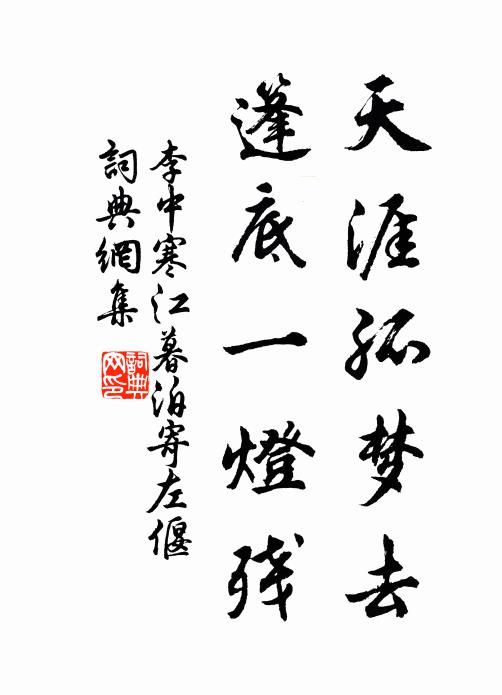 天涯孤梦去
篷底一燈残
李中寒江暮泊寄左偃
詞典網集
詞典網印